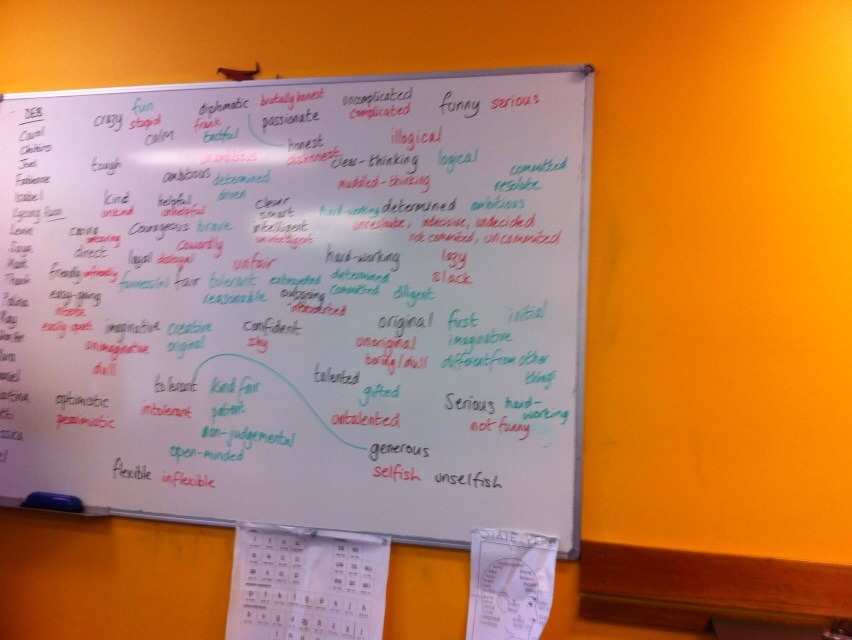 DEB
Carol
Chihiro
Joel
Fabienne
Isabel
Kevin
crazy fun
stupid
calm
diplomatic brutally honest
frank
tactful
passionate
honest
dishonest
uncomplicated
complicated
funny serious
illogical
tough
unambitious
ambitious determined
driven
clear-thinking logical
muddled-thinking
committed
resolute
kind
unkind
helpful
unhelpful
clever
smart
intelligent
unintelligent
hard-working determined ambitious
unresolute, indecisive, undecided
not commited, uncommitted
caring
uncaring
direct
Courageous brave
cowardly
loyal disloyal
unfair
hard-working
determined
committed
diligent
lazy
slack
friendly unfriendly
fairness(n) fair tolerant
reasonable
extroverted
outgoing
introverted
easy-going
intense
easily upset
imaginative creative
unimaginative original
dull
confident
shy
original first initial
unoriginal imaginative
boring/dull different from other
things
tolerant kind fair
intolerant patient
non-judgemental
open-minded
talented
gifted
untalented
optimistic
pessimistic
Serious hard-
working
not funny
generous
selfish unselfish
flexible inflexible
STATE VERBS